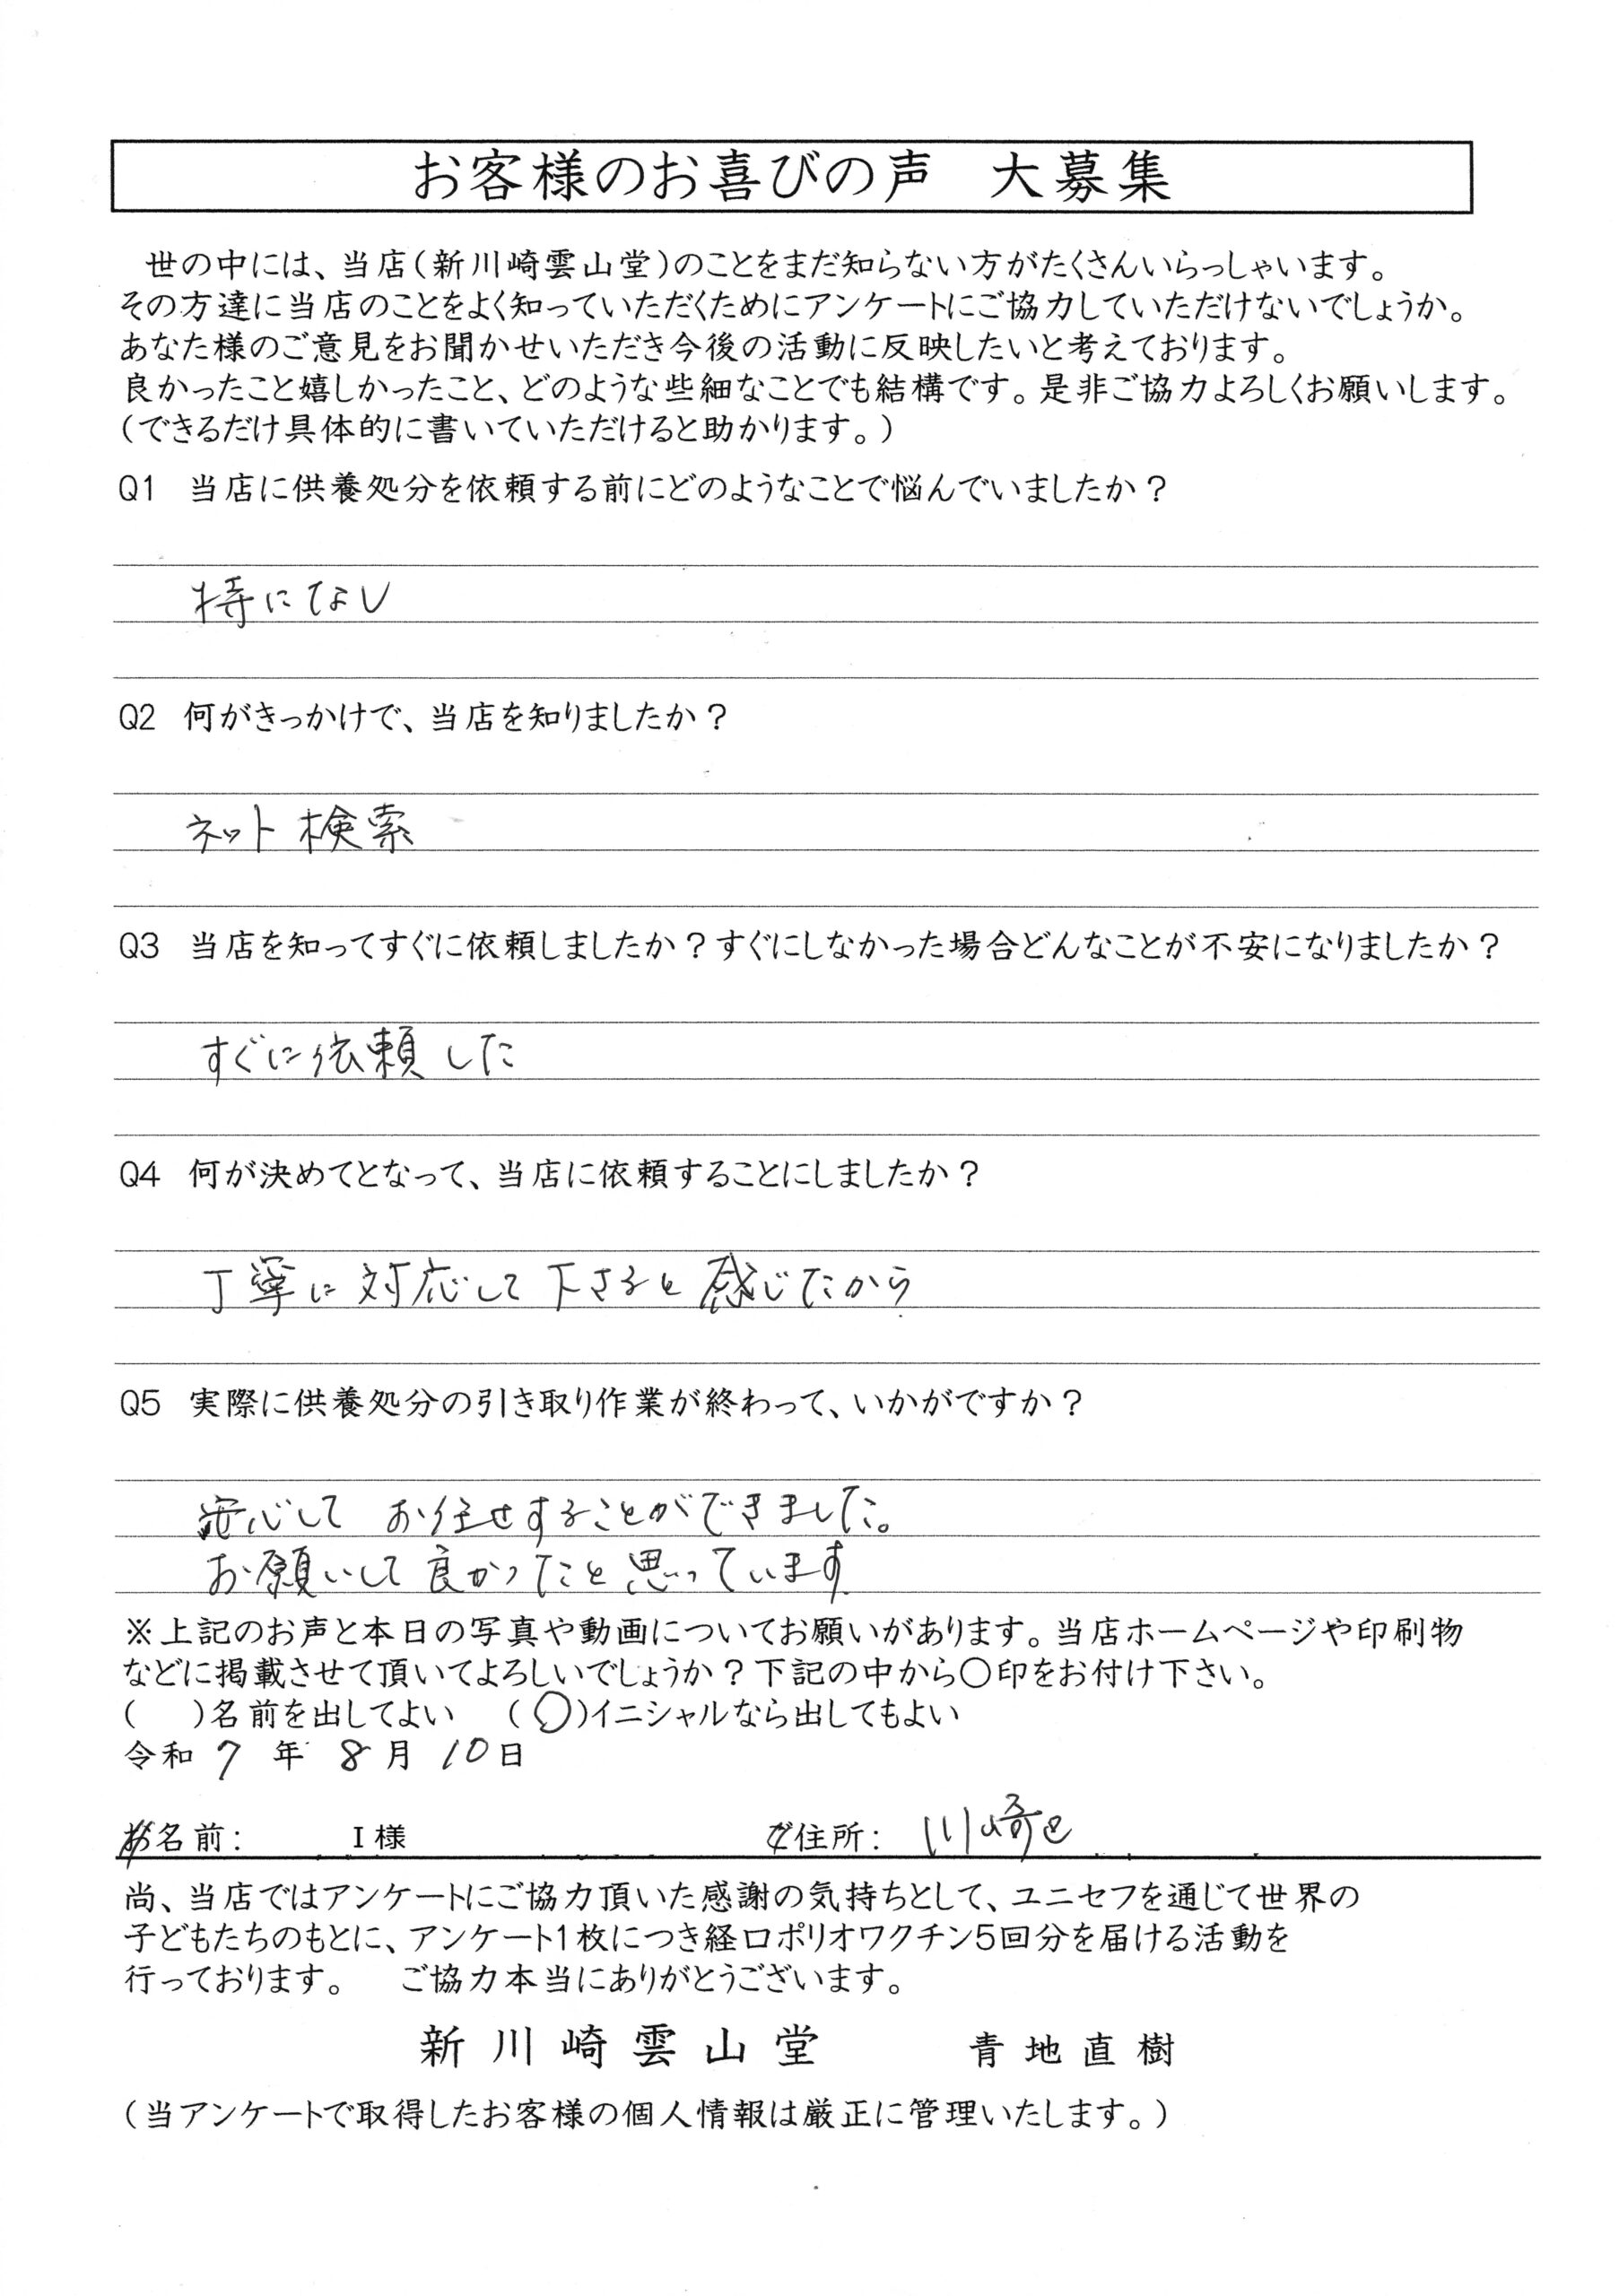 お客様のお喜びの声　大募集
世の中には、当店（新川崎雲山堂）のことをまだ知らない方がたくさんいらっしゃいます。
その方達に当店のことをよく知っていただくためにアンケートにご協力していただけないでしょうか。
あなた様のご意見をお聞かせいただき今後の活動に反映したいと考えております。
良かったこと嬉しかったこと、どのような些細なことでも結構です。是非ご協力よろしくお願いします。
（できるだけ具体的に書いていただけると助かります。）
Q1　当店に供養処分を依頼する前にどのようなことで悩んでいましたか？
特になし
Q2　何がきっかけで、当店を知りましたか？
ネット検索
Q3　当店を知ってすぐに依頼しましたか？すぐにしなかった場合どんなことが不安になりましたか？
すぐに依頼した
Q4　何が決めてとなって、当店に依頼することにしましたか？
丁寧に対応して下さると感じたから
Q5　実際に供養処分の引き取り作業が終わって、いかがですか？
安心して お任せすることができました。
お願いして良かったと思っています
※上記のお声と本日の写真や動画についてお願いがあります。当店ホームページや印刷物
などに掲載させて頂いてよろしいでしょうか？下記の中から〇印をお付け下さい。
（　）名前を出してよい　（〇）イニシャルなら出してもよい
令和 7 年 8 月 10 日
お名前：　I 様　ご住所：　川崎区
尚、当店ではアンケートにご協力頂いた感謝の気持ちとして、ユニセフを通じて世界の
子どもたちのもとに、アンケート1枚につき経口ポリオワクチン5回分を届ける活動を
行っております。　ご協力本当にありがとうございます。
新川崎雲山堂　青地直樹
（当アンケートで取得したお客様の個人情報は厳正に管理いたします。）